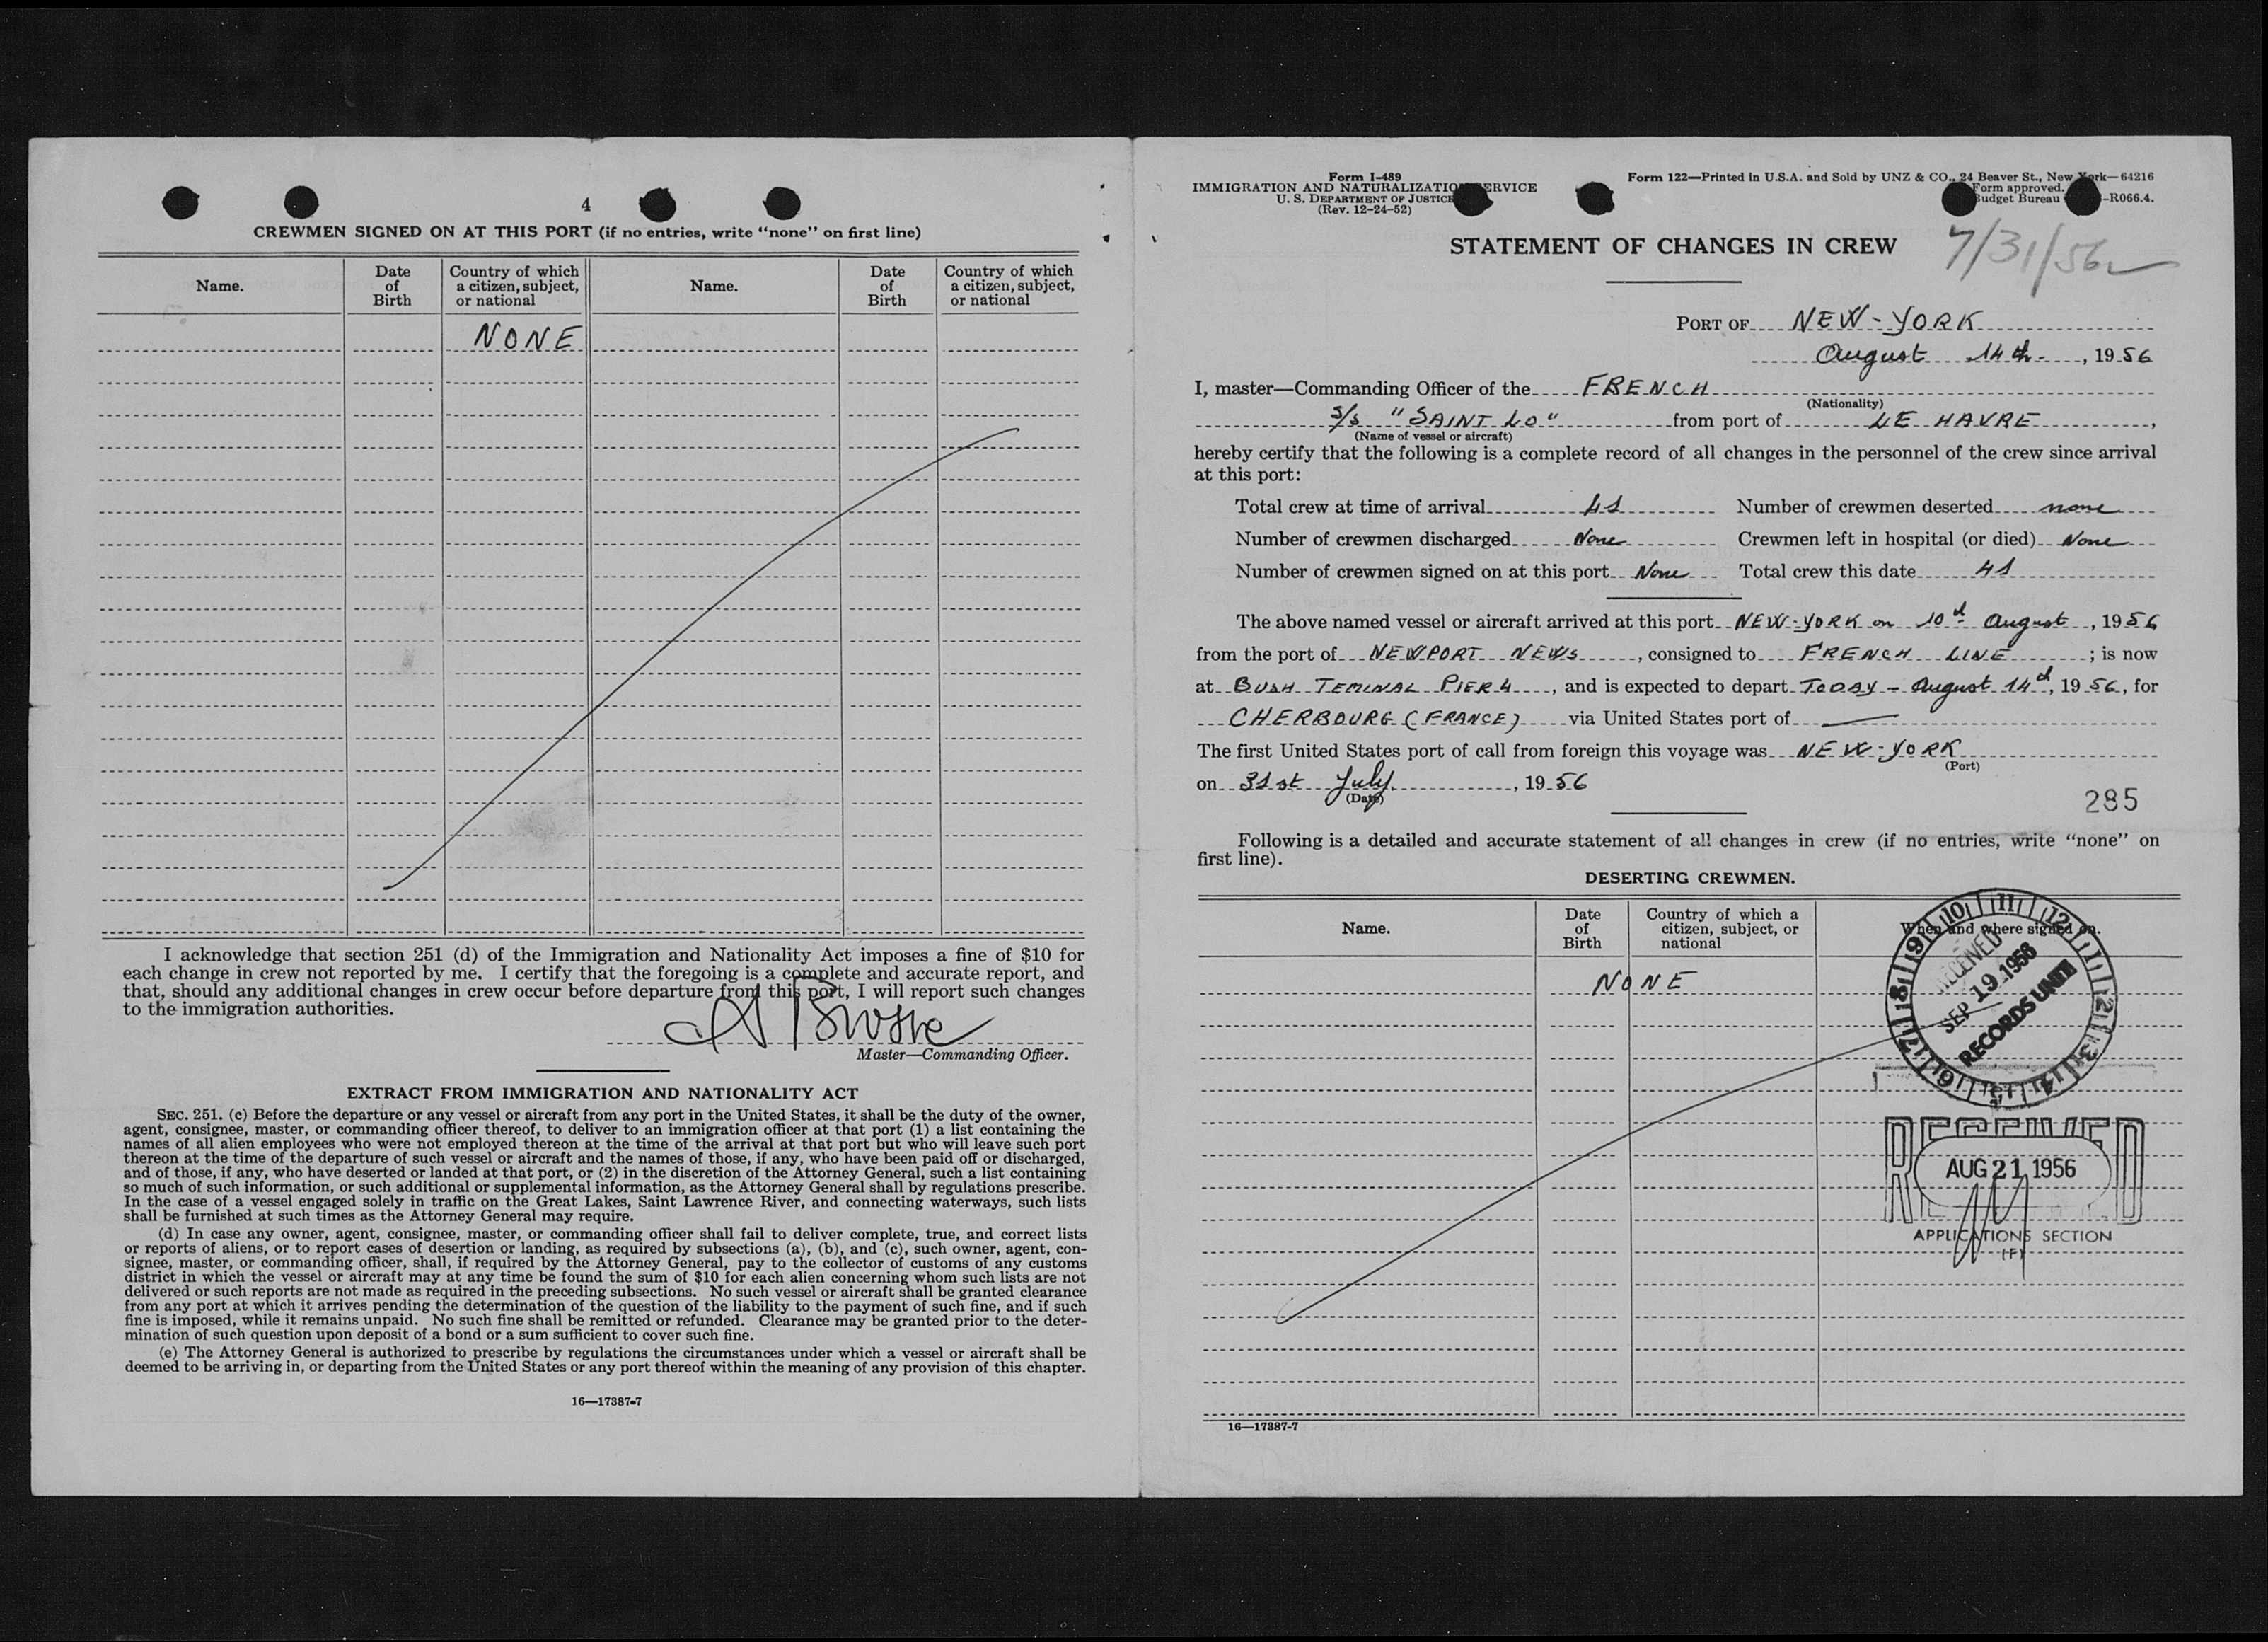 4
CREWMEN SIGNED ON AT THIS PORT (if no entries, write “none” on first line)
Name.
Date of Birth
Country of which a citizen, subject, or national
Name.
Date of Birth
Country of which a citizen, subject, or national
NONE
I acknowledge that section 251 (d) of the Immigration and Nationality Act imposes a fine of $10 for
each change in crew not reported by me. I certify that the foregoing is a complete and accurate report, and
that, should any additional changes in crew occur before departure from this port, I will report such changes
to the immigration authorities.
Master—Commanding Officer.
EXTRACT FROM IMMIGRATION AND NATIONALITY ACT
SEC. 251. (c) Before the departure or any vessel or aircraft from any port in the United States, it shall be the duty of the owner,
agent, consignee, master, or commanding officer thereof, to deliver to an immigration officer at that port (1) a list containing the
names of all alien employees who were not employed thereon at the time of the arrival at that port but who will leave such port
thereon at the time of the departure of such vessel or aircraft and the names of those, if any, who have been paid off or discharged,
and of those, if any, who have deserted or landed at that port, or (2) in the discretion of the Attorney General, such a list containing
so much of such information, or such additional or supplemental information, as the Attorney General shall by regulations prescribe.
In the case of a vessel engaged solely in traffic on the Great Lakes, Saint Lawrence River, and connecting waterways, such lists
shall be furnished at such times as the Attorney General may require.
(d) In case any owner, agent, consignee, master, or commanding officer shall fail to deliver complete, true, and correct lists
or reports of aliens, or to report cases of desertion or landing, as required by subsections (a), (b), and (c), such owner, agent, con-
signee, master, or commanding officer, shall, if required by the Attorney General, pay to the collector of customs of any customs
district in which the vessel or aircraft may at any time be found the sum of $10 for each alien concerning whom such lists are not
delivered or such reports are not made as required in the preceding subsections. No such vessel or aircraft shall be granted clearance
from any port at which it arrives pending the determination of the question of the liability to the payment of such fine, and if such
fine is imposed, while it remains unpaid. No such fine shall be remitted or refunded. Clearance may be granted prior to the deter-
mination of such question upon deposit of a bond or a sum sufficient to cover such fine.
(e) The Attorney General is authorized to prescribe by regulations the circumstances under which a vessel or aircraft shall be
deemed to be arriving in, or departing from the United States or any port thereof within the meaning of any provision of this chapter.
16—17387-7
Form I-489
IMMIGRATION AND NATURALIZATION SERVICE
U. S. DEPARTMENT OF JUSTICE
(Rev. 12-24-52)
Form 122—Printed in U.S.A. and Sold by UNZ & CO., 24 Beaver St., New York—64216
Form approved.
Budget Bureau -R066.4.
7/31/56
STATEMENT OF CHANGES IN CREW
PORT OF NEW-YORK
August 14th, 1956
I, master—Commanding Officer of the FRENCH
(Nationality)
S/S "SAINT LO" from port of LE HAVRE,
(Name of vessel or aircraft)
hereby certify that the following is a complete record of all changes in the personnel of the crew since arrival
at this port:
Total crew at time of arrival 41 Number of crewmen deserted none
Number of crewmen discharged None Crewmen left in hospital (or died) None
Number of crewmen signed on at this port None Total crew this date 41
The above named vessel or aircraft arrived at this port NEW-YORK on 10th August, 1956
from the port of NEWPORT NEWS, consigned to FRENCH LINE; is now
at BUSH TEMINAL PIER 4, and is expected to depart TODAY - August 14th, 1956, for
CHERBOURG (FRANCE) via United States port of —
The first United States port of call from foreign this voyage was NEW-YORK
(Port)
on 31st July, 1956
(Date)
285
Following is a detailed and accurate statement of all changes in crew (if no entries, write “none” on
first line).
DESERTING CREWMEN.
Name.
Date of Birth
Country of which a citizen, subject, or national
When and where signed on.
NONE
10 11 12 1 2 3 4 5 6 7 8 9
RECEIVED
SEP 19 1956
RECORDS UNIT
RECEIVED
AUG 21 1956
APPLICATIONS SECTION
(F)
16—17387-7